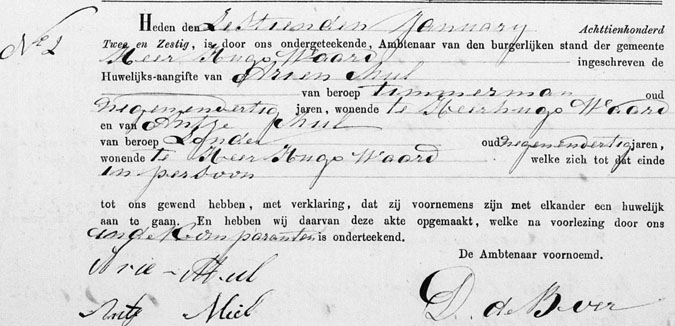 No 2
Heden den Zestienden January Achttienhonderd
Twee en Zestig, is door ons ondergeteekende, Ambtenaar van den burgerlijken stand der gemeente
Heer Hugo Waard ingeschreven de
Huwelijks-aangifte van Arien Mul
van beroep timmerman oud
Negenendertig jaren, wonende te Heerhugo Waard
en van Antje
van beroep Zonder oud Negenendertig jaren,
wonende te Heer Hugo Waard welke zich tot dat einde
in persoon
tot ons gewend hebben, met verklaring, dat zij voornemens zijn met elkander een huwelijk
aan te gaan. En hebben wij daarvan deze akte opgemaakt, welke na voorlezing door ons
en de Komparanten is onderteekend.
De Ambtenaar voornoemd.
Arie Mul
D. de Boer
Antj